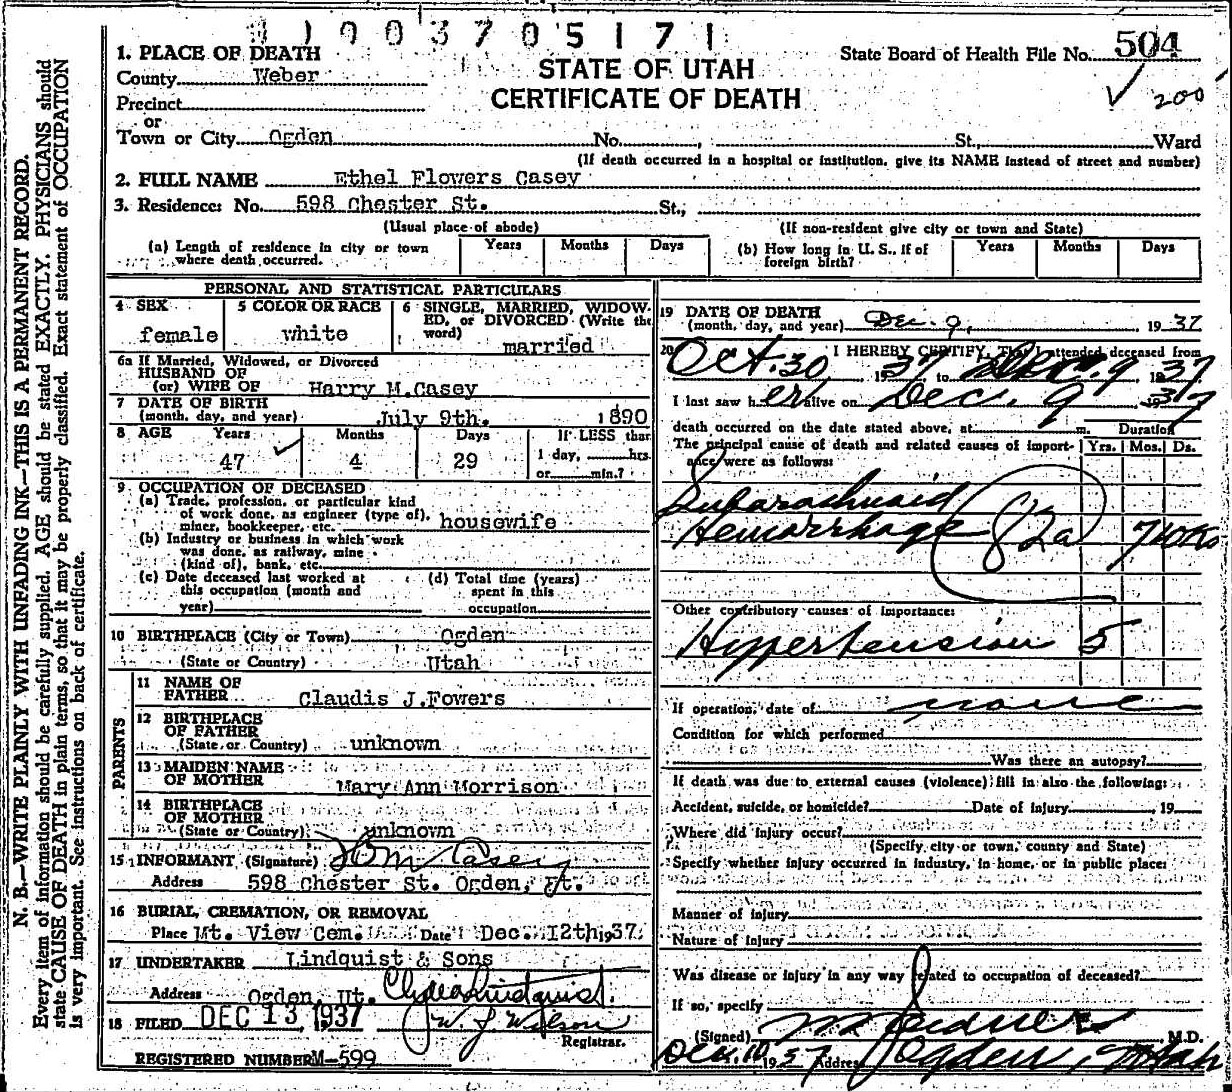 1 0 0 3 7 0 5 1 7 1
1. PLACE OF DEATH
County Weber
Precinct
or
Town or City Ogden No. , St., Ward
STATE OF UTAH
CERTIFICATE OF DEATH
State Board of Health File No. 504
✓ 200
(If death occurred in a hospital or institution, give its NAME instead of street and number)
2. FULL NAME Ethel Flowers Casey
3. Residence: No. 598 Chester St. St.,
(Usual place of abode) (If non-resident give city or town and State)
(a) Length of residence in city or town where death occurred. Years Months Days
(b) How long in U. S., if of foreign birth? Years Months Days
N. B.—WRITE PLAINLY WITH UNFADING INK—THIS IS A PERMANENT RECORD.
Every item of information should be carefully supplied. AGE should be stated EXACTLY. PHYSICIANS should
state CAUSE OF DEATH in plain terms, so that it may be properly classified. Exact statement of OCCUPATION
is very important. See instructions on back of certificate.
PERSONAL AND STATISTICAL PARTICULARS
4 SEX female
5 COLOR OR RACE white
6 SINGLE, MARRIED, WIDOW-
ED, or DIVORCED (Write the
word) married
6a If Married, Widowed, or Divorced
HUSBAND OF
(or) WIFE OF Harry M.Casey
7 DATE OF BIRTH
(month, day, and year) July 9th. 1890
8 AGE Years Months Days If LESS than
47 ✓ 4 29 1 day, hrs.
or min.?
9 OCCUPATION OF DECEASED
(a) Trade, profession, or particular kind
of work done, as engineer (type of),
miner, bookkeeper, etc. housewife
(b) Industry or business in which work
was done, as railway, mine
(kind of), bank, etc.
(c) Date deceased last worked at
this occupation (month and
year)
(d) Total time (years)
spent in this
occupation
10 BIRTHPLACE (City or Town) Ogden
(State or Country) Utah
PARENTS
11 NAME OF
FATHER Claudis J.Fowers
12 BIRTHPLACE
OF FATHER
(State or Country) unknown
13 MAIDEN NAME
OF MOTHER Mary Ann Morrison
14 BIRTHPLACE
OF MOTHER
(State or Country) unknown
15 INFORMANT (Signature) Casey
Address 598 Chester St. Ogden, Ut.
16 BURIAL, CREMATION, OR REMOVAL
Place Mt. View Cem. Date Dec. 12th 1937
17 UNDERTAKER Lindquist & Sons
Address Ogden, Ut. Clyde Lindquist.
18 FILED DEC 13 1937 W. J. Wilson
Registrar.
REGISTERED NUMBER M-599
19 DATE OF DEATH
(month, day, and year) Dec. 9, 1937
20 I HEREBY CERTIFY, That I attended deceased from
Oct. 30, 1937, to Dec. 9, 1937
I last saw her alive on Dec. 9 1937
death occurred on the date stated above, at m. Duration
The principal cause of death and related causes of import-
ance were as follows: Yrs. Mos. Ds.
Subarachnoid
Hemorrhage 82a
Other contributory causes of importance:
Hypertension 5
If operation, date of none
Condition for which performed
Was there an autopsy?
If death was due to external causes (violence) fill in also the following:
Accident, suicide, or homicide? Date of injury 19
Where did injury occur?
(Specify city or town, county and State)
Specify whether injury occurred in industry, in home, or in public place:
Manner of injury
Nature of injury
Was disease or injury in any way related to occupation of deceased?
If so, specify
(Signed) M.D.
Dec. 10 1937 Address Ogden, Utah